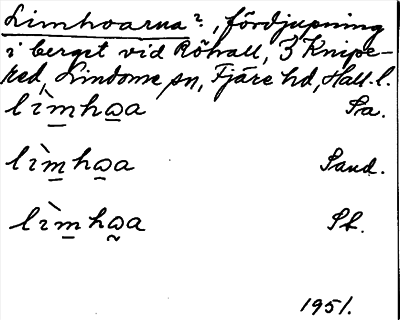 Limhoarna?, fördjupning
i berget vid Röhall, 3 Knipe-
red, Lindome sn, Fjäre hd, Hall. l.
lìmhωa Sa.
lìmhωa Sand.
lìmhωa St.
1951.